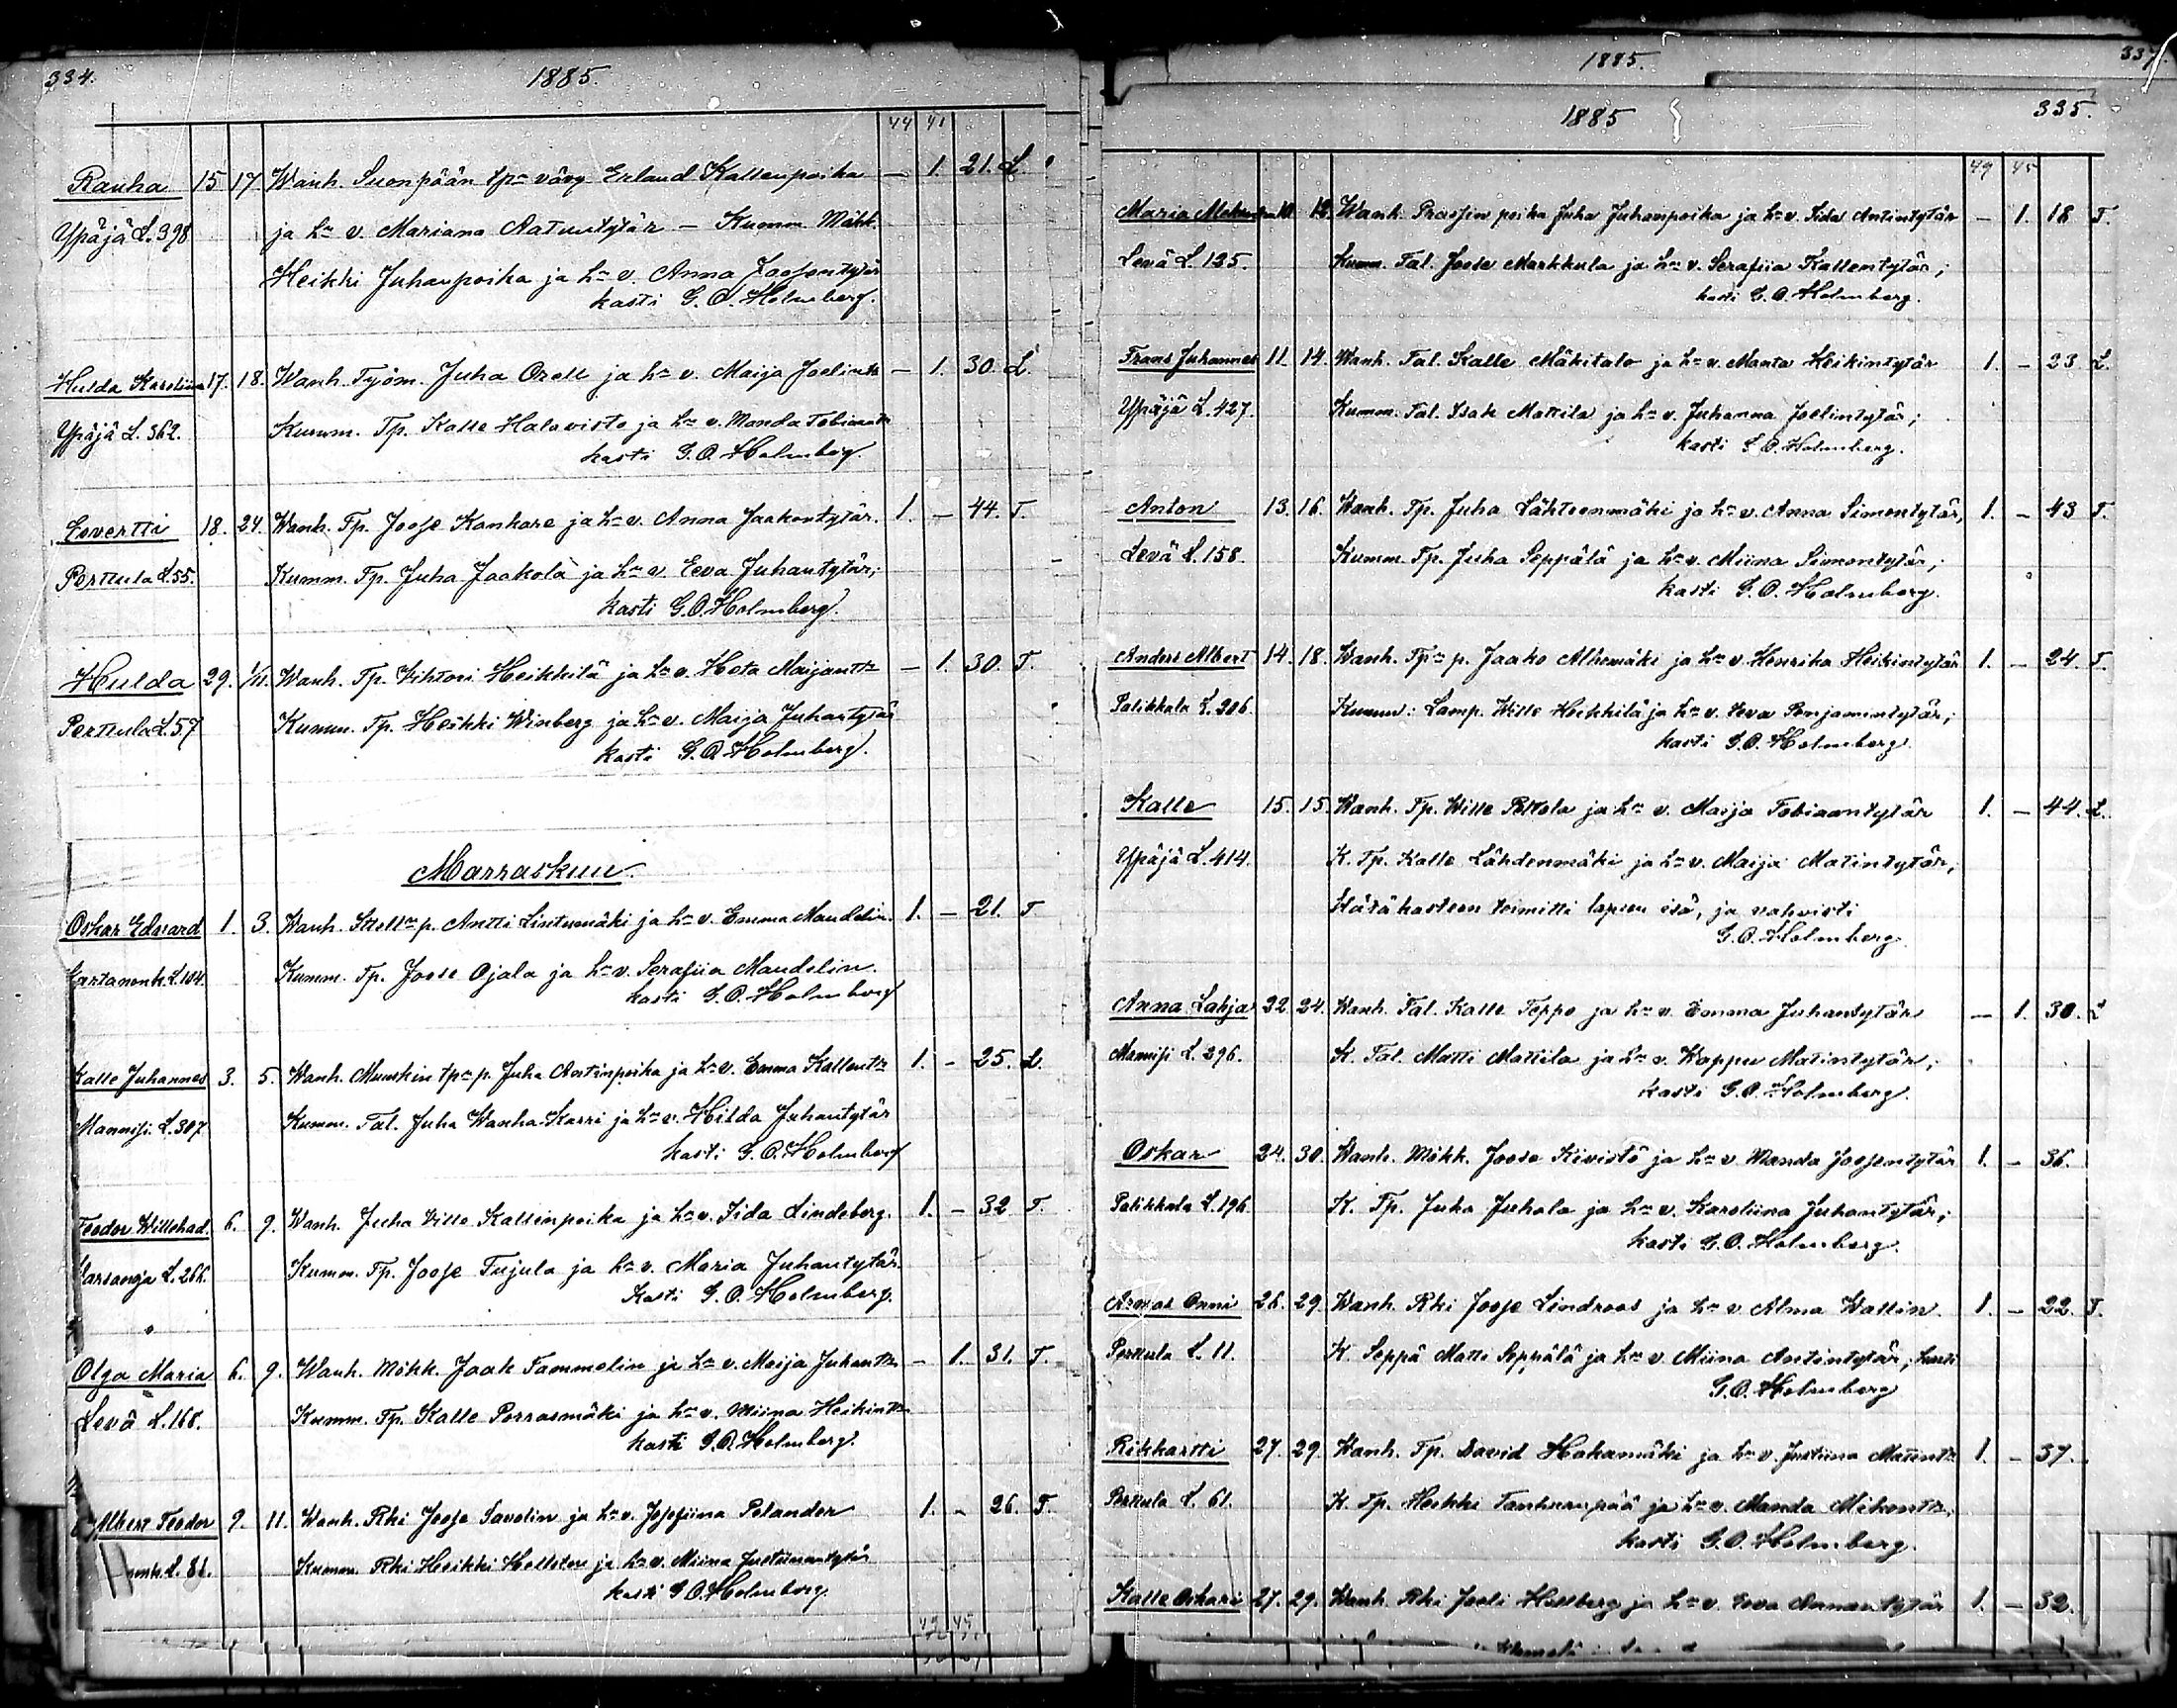 334.
1885.
44 41
Rauha 15 17 Wanh. Suonpään tp:n vävy Erland Kallenpoika — 1. 21. L.
Ypäjä L. 398 ja h:n v. Mariana Aatuntytär — Kumm. Mökk.
Heikki Juhanpoika ja h:n v. Anna Joosentytär
kasti G. O. Holmberg.
Hulda Karoliina 17. 18. Wanh. Työm. Juha Orell ja h:n v. Maija Joelintr — 1. 30. L.
Ypäjä L. 362. Kumm. Tp. Kalle Halavisto ja h:n v. Manda Tobiaantr
kasti G. O. Holmberg.
Eevertti 18. 24. Wanh. Tp. Joose Kanhare ja h:n v. Anna Jaakontytär. 1. — 44. T.
Perttula L. 55. Kumm. Tp. Juha Jaakola ja h:n v. Eeva Juhantytär;
kasti G. O. Holmberg.
Hulda 29. 1/11. Wanh. Tp. Vihtori Heikkilä ja h:n v. Heta Maijantr — 1. 30. T.
Perttula L. 57 Kumm. Tp. Heikki Winberg ja h:n v. Maija Juhantytär
kasti G. O. Holmberg.
Marraskuu.
Oskar Edvard 1. 3. Wanh. p. Antti Lintumäki ja h:n v. Emma Mandelin. 1. — 21. T
Kartanonk. L. 104. Kumm. Tp. Joose Ojala ja h:n v. Serafiia Mandelin.
kasti G. O. Holmberg
Kalle Juhannes 3. 5. Wanh. Muuskin tp:n p. Juha Antinpoika ja h:n v. Emma Kallentr 1. — 25. L.
Mannisi. L. 307 Kumm. Tal. Juha Wanha-Karri ja h:n v. Hilda Juhantytär
kasti G. O. Holmberg
Teodor Willehad. 6. 9. Wanh. Juha Wille Kallenpoika ja h:n v. Iida Lindeberg. 1. — 32 T.
L. 266. Kumm. Tp. Joose Tujula ja h:n v. Maria Juhantytär.
Kasti G. O. Holmberg.
Olga Maria 6. 9. Wanh. Mökk. Jaak Tammelin ja h:n v. Maija Juhantr — 1. 31. T.
Levä L. 168. Kumm. Tp. Kalle Porrasmäki ja h:n v. Miina Heikintr
kasti G. O. Holmberg.
Albert Teodor 9. 11. Wanh. Rki Joose Savolin ja h:n v. Josefiina Polander 1. — 26. T.
L. 81. Kumm. Rki Heikki Hellsten ja h:n v. Miina Justiinantytär
kasti G. O. Holmberg.
49 45
1885. 337.
1885 335.
49 45
Maria 10 12. Wanh. Prassin poika Juha Juhanpoika ja h:n v. Iida Antintytär — 1. 18 T.
Levä L. 135. Kumm. Tal. Joose Markkula ja h:n v. Serafiia Kallentytär;
kasti G. O. Holmberg.
Frans Juhannes 11. 14. Wanh. Tal. Kalle Mäkitalo ja h:n v. Manta Heikintytär 1. — 23 L.
Ypäjä L. 427. Kumm. Tal. Isak Mattila ja h:n v. Juhanna Joelintytär;
kasti G. O. Holmberg.
Anton 13. 16. Wanh. Tp. Juha Lähteenmäki ja h:n v. Anna Simontytär, 1. — 43 T.
Levä L. 158. Kumm. Tp. Juha Seppälä ja h:n v. Miina Simontytär;
kasti G. O. Holmberg.
Anders Albert 14. 18. Wanh. Tp:n p. Jaako Alhomäki ja h:n v. Henrika Heikintytär 1. — 24. T.
Palikkala L. 206. Kumm: Lamp. Wille Heikkilä ja h:n v. Eeva Penjamintytär;
kasti G. O. Holmberg.
Kalle 15. 15. Wanh. Tp. Wille Pettola ja h:n v. Maija Tobiaantytär 1. — 44. L.
Ypäjä L. 414. K. Tp. Kalle Lähdenmäki ja h:n v. Maija Matintytär;
Hätäkasteen toimitti lapsen isä, ja vahvisti
G. O. Holmberg.
Anna Lahja 22. 24. Wanh. Tal. Kalle Teppo ja h:n v. Emma Juhantytär — 1. 30. L
Mannisi L. 296. K. Tal. Matti Mattila ja h:n v. Wappu Matintytär;
kasti G. O. Holmberg.
Oskar 24. 30. Wanh. Mökk. Joose Kivistö ja h:n v. Wanda Joosentytär 1. — 36.
Palikkala L. 196. K. Tp. Juha Juhala ja h:n v. Karoliina Juhantytär;
kasti G. O. Holmberg.
Armas Onni 26. 29. Wanh. Rki Joose Lindroos ja h:n v. Alma Wallin. 1. — 22. T.
Perttula L. 11. K. Seppä Matti Seppälä ja h:n v. Miina Antintytär; kasti
G. O. Holmberg
Rikhartti 27. 29. Wanh. Tp. David Hakamäki ja h:n v. Justiina Matintr 1. — 37.
Perttula L. 61. K. Tp. Heikki Tanhuanpää ja h:n v. Manda Mikontr;
kasti G. O. Holmberg.
Kalle Oskari 27. 29. Wanh. Rki Joeli Hellberg ja h:n v. Eeva Annantytär 1. — 32.